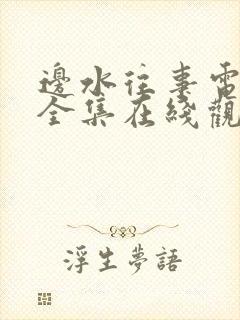 邊水往事電
全集在綫觀
浮生夢語